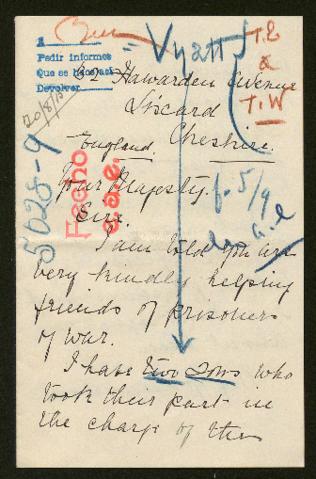 1
Pedir informes
Que se
Devolver
= Vyatt
T.E
&
T.W
20/8/15
Hawarden Avenue
Liscard
England. Cheshire.
5028-9
f. 5/9
Your Majesty.
Sire.
I am told you are
very kindly helping
friends of prisoners
of war.
I have two sons who
took their part in
the charge of the